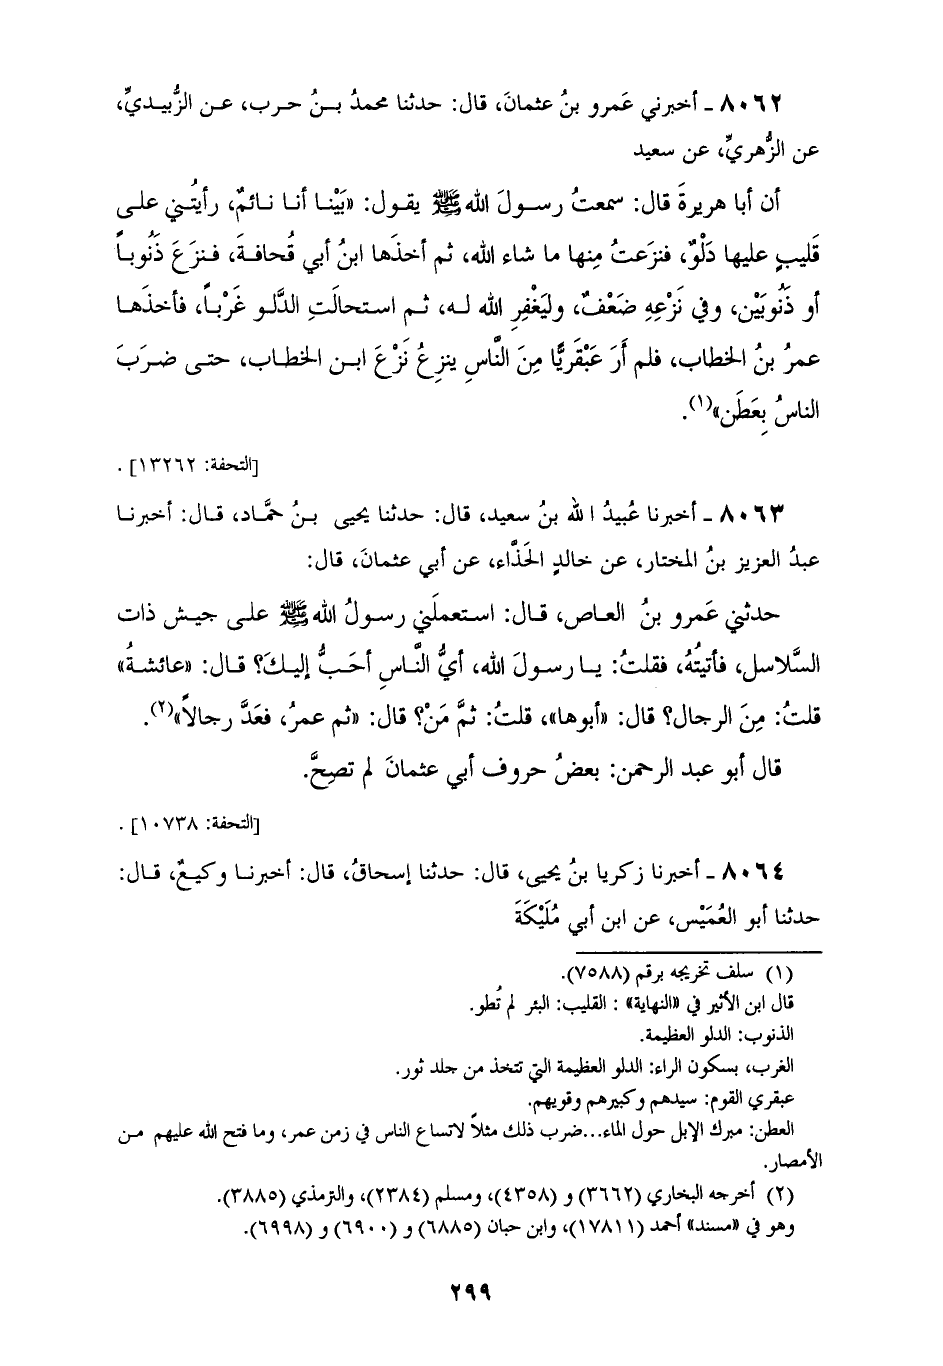 ٨٠٦٢ ـ أخبرني عَمرو بنُ عثمانَ، قال: حدثنا محمدُ بـنُ حـرب، عـن الزُّبيـديِّ،
عن الزُّهريِّ، عن سعيد
أن أبا هريرةَ قال: سمعتُ رسـولَ الله ﷺ يقـول: «بَيْنـا أنـا نـائمٌ، رأيتُـني علـى
قَليبٍ عليها دَلْوٌ، فنزَعت مِنها ما شاء الله، ثم أخذَها ابنُ أبي قُحافـةَ، فـنزَعَ ذَنُوبـاً
أو ذَنُوبَيْن، وفي نَزْعِهِ ضَعْفٌ، وليَغْفِرِ الله لـه، ثـم استحالَتِ الدَّلـو غَرْبـاً، فأخذَهـا
عمرُ بنُ الخطاب، فلم أَرَ عَبْقَريًّا مِنَ النَّاسِ ينزِعُ نَزْعَ ابـن الخطـاب، حتـى ضـرَبَ
الناسُ بِعَطَن»(١).
[التحفة: ١٣٢٦٢] .
٨٠٦٣ ـ أخبرنا عُبيدُ الله بنُ سعيد، قال: حدثنا يحيى بـنُ حمَّـاد، قـال: أخبرنـا
عبدُ العزيز بنُ المختار، عن خالدٍ الحَذَّاء، عن أبي عثمانَ، قال:
حدثني عَمرو بنُ العـاص، قـال: استعملَني رسـولُ الله ﷺ علـى جيـش ذات
السَّلاسل، فأتيتُهُ، فقلتُ: يـا رسـولَ الله، أيُّ النَّاسِ أحَـبُّ إليـكَ؟ قـال: «عائشـةُ»
قلتُ: مِنَ الرجال؟ قال: «أبوها»، قلتُ: ثمَّ مَنْ؟ قال: «ثم عمرُ، فعَدَّ رجالاً»(٢).
قال أبو عبد الرحمن: بعضُ حروف أبي عثمانَ لم تصِحَّ.
[التحفة: ١٠٧٣٨] .
٨٠٦٤ ـ أخبرنا زكريا بنُ يحيى، قال: حدثنا إسحاقُ، قال: أخبرنـا وكيـعٌ، قـال:
حدثنا أبو العُمَيْس، عن ابن أبي مُلَيْكَةَ
(١) سلف تخريجه برقم (٧٥٨٨).
قال ابن الأثير في «النهاية» : القليب: البئر لم تُطو.
الذنوب: الدلو العظيمة.
الغرب، بسكون الراء: الدلو العظيمة التي تتخذ من جلد ثور.
عبقري القوم: سيدهم وكبيرهم وقويهم.
العطن: مبرك الإبل حول الماء...ضرب ذلك مثلاً لاتساع الناس في زمن عمر، وما فتح الله عليهم مـن
الأمصار.
(٢) أخرجه البخاري (٣٦٦٢) و (٤٣٥٨)، ومسلم (٢٣٨٤)، والترمذي (٣٨٨٥).
وهو في «مسند» أحمد (١٧٨١١)، وابن حبان (٦٨٨٥) و (٦٩٠٠) و (٦٩٩٨).
٢٩٩